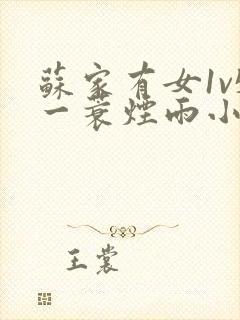 蘇家有女1v
一蓑煙雨小
王裳